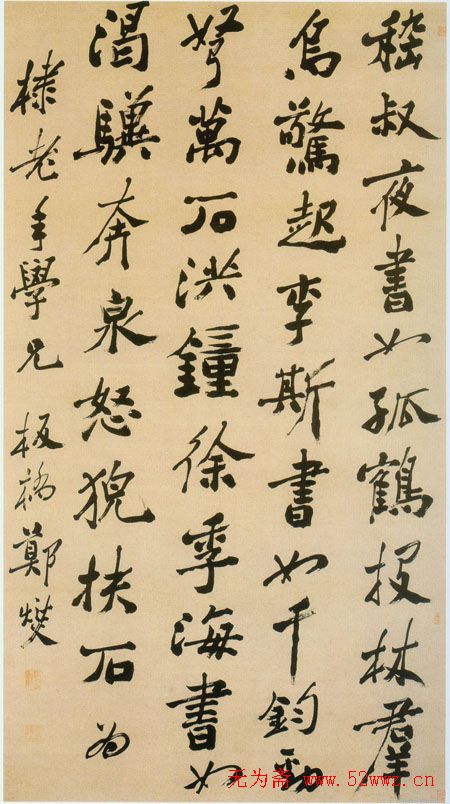 嵇叔夜書如孤鶴投林羣
烏驚起李斯書如千鈞勁
弩萬石洪鐘徐季海書如
渴驥奔泉怒猊扶石為
棣老年學兄 板橋鄭燮
无为斋 www.52wwz.cn